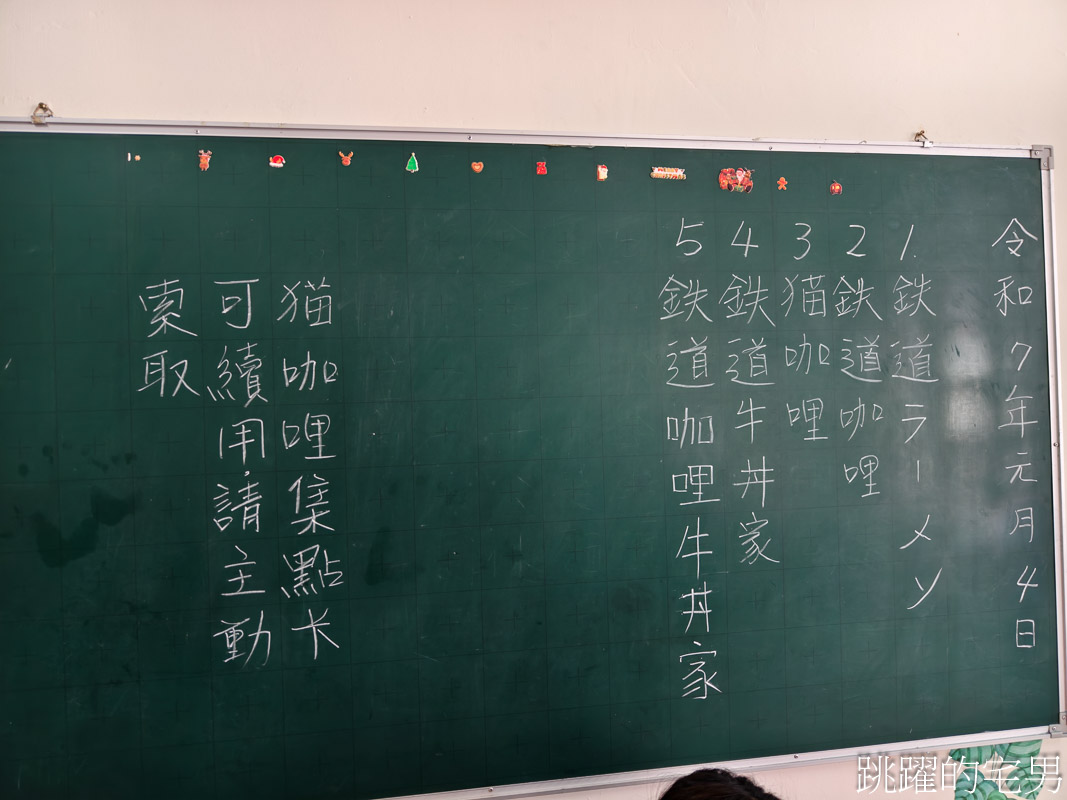 令和7年元月4日
1.鉄道ラーメソ
2鉄道咖哩
3猫咖哩
4鉄道牛丼家
5鉄道咖哩牛丼家
猫咖哩集點卡
可續用,請主動
索取
跳躍的宅男